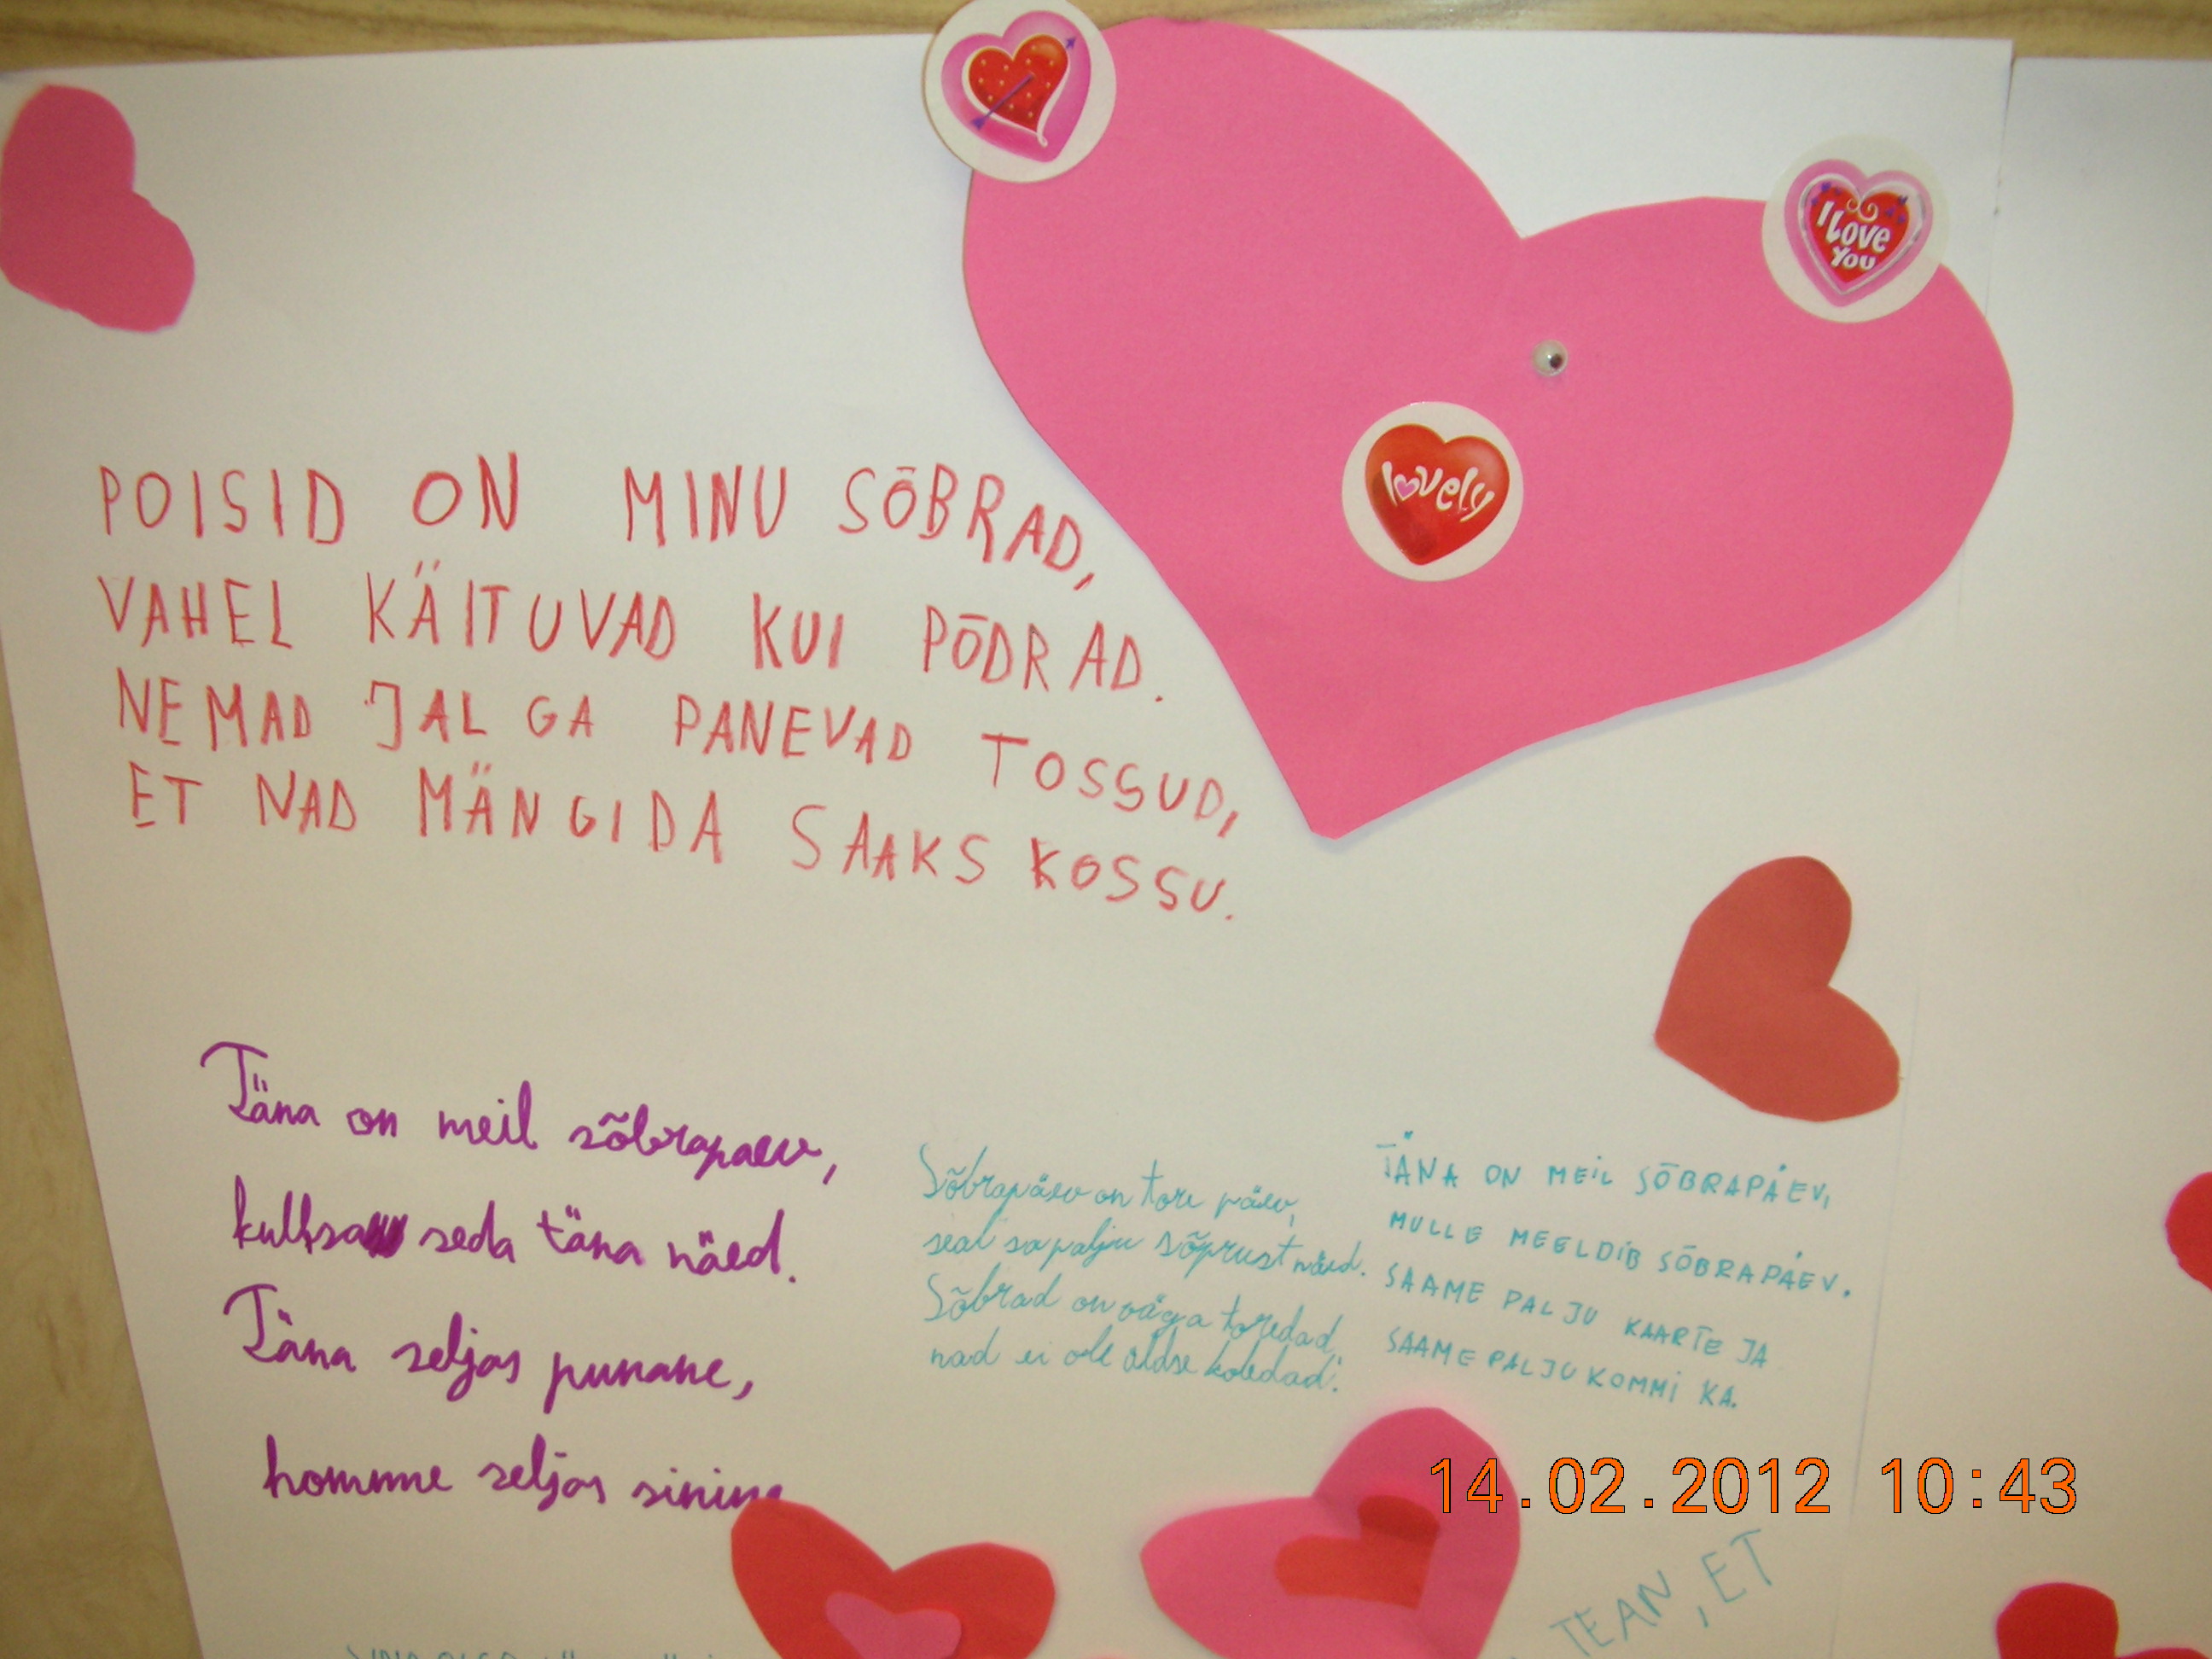 I LOVE YOU
lovely
POISID ON MINU SÕBRAD,
VAHEL KÄITUVAD KUI PÕDRAD.
NEMAD JALGA PANEVAD TOSSUD,
ET NAD MÄNGIDA SAAKS KOSSU.
Täna on meil sõbrapaev,
seda täna näed.
Täna seljas punane,
homme seljas
Sõbrapäev on tore päev,
seal sa palju sõprust näed.
Sõbrad on väga toredad,
nad ei ole üldse koledad.
TÄNA ON MEIL SÕBRAPÄEV,
MULLE MEELDIB SÕBRAPÄEV.
SAAME PALJU KAARTE JA
SAAME PALJU KOMMI KA.
14.02.2012 10:43
TEAN, ET